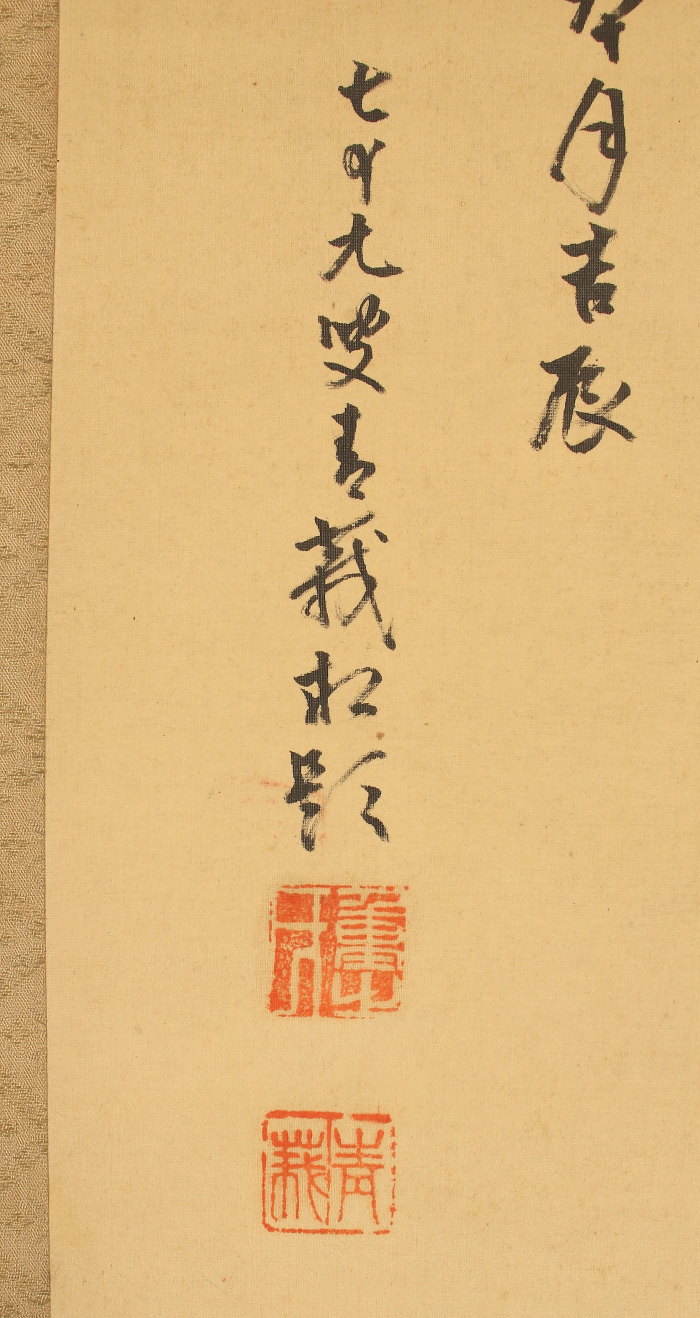 月吉辰
七十九叟青莪松題
青莪